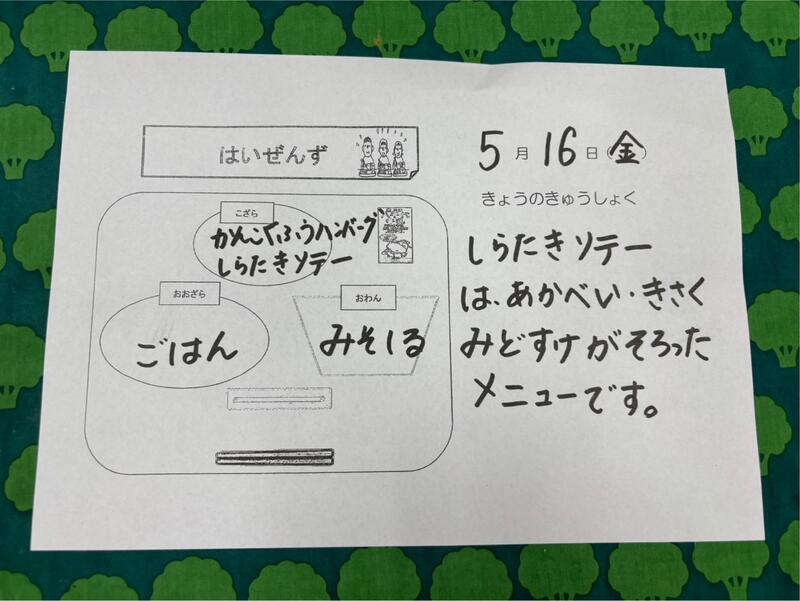 はいぜんず
5月16日(金)
きょうのきゅうしょく
こざら
かんこくふうハンバーグ
しらたきソテー
おおざら
ごはん
おわん
みそしる
しらたきソテー
は、あかべい・きさく
みどすけがそろった
メニューです。